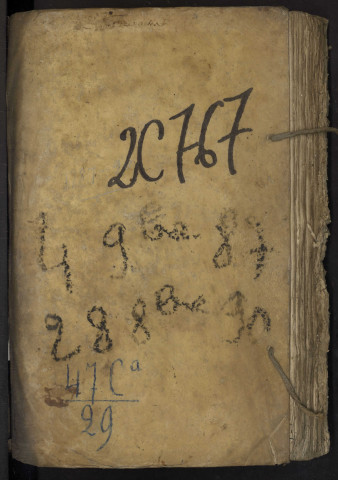 2C767
4 9bre 87
28 8bre 91
47 Ca
29